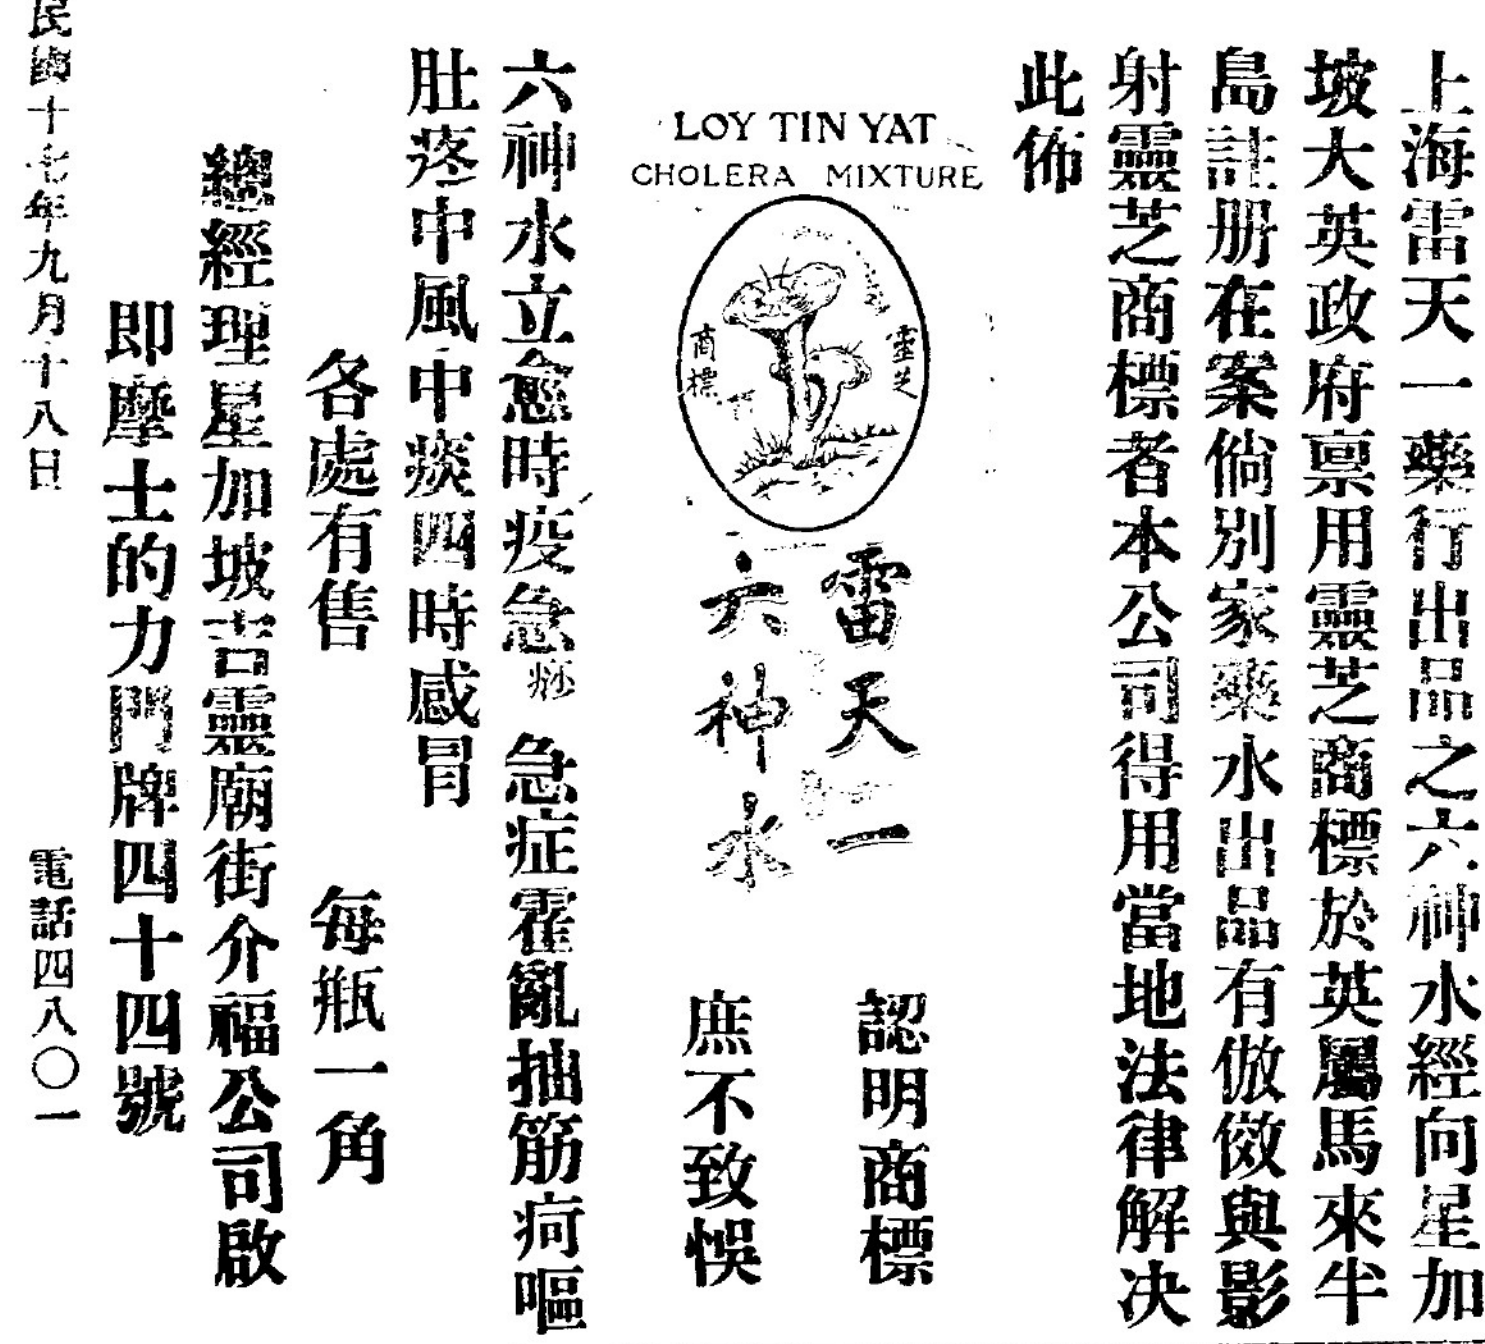 上海雷天一藥行出品之六神水經向星加
坡大英政府禀用靈芝商標於英屬馬來半
島註册在案倘別家藥水出品有倣傚與影
射靈芝商標者本公司得用當地法律解决
此佈
LOY TIN YAT
CHOLERA MIXTURE
靈芝
商標
雷天一
六神水
認明商標
庶不致悞
六神水立愈時疫急痧急症霍亂抽筋疴嘔
肚疼中風中痰四時感冒
各處有售 每瓶一角
總經理星加坡吉靈廟街介福公司啟
即摩士的力門牌四十四號
民國十七年九月十八日 電話四八〇一